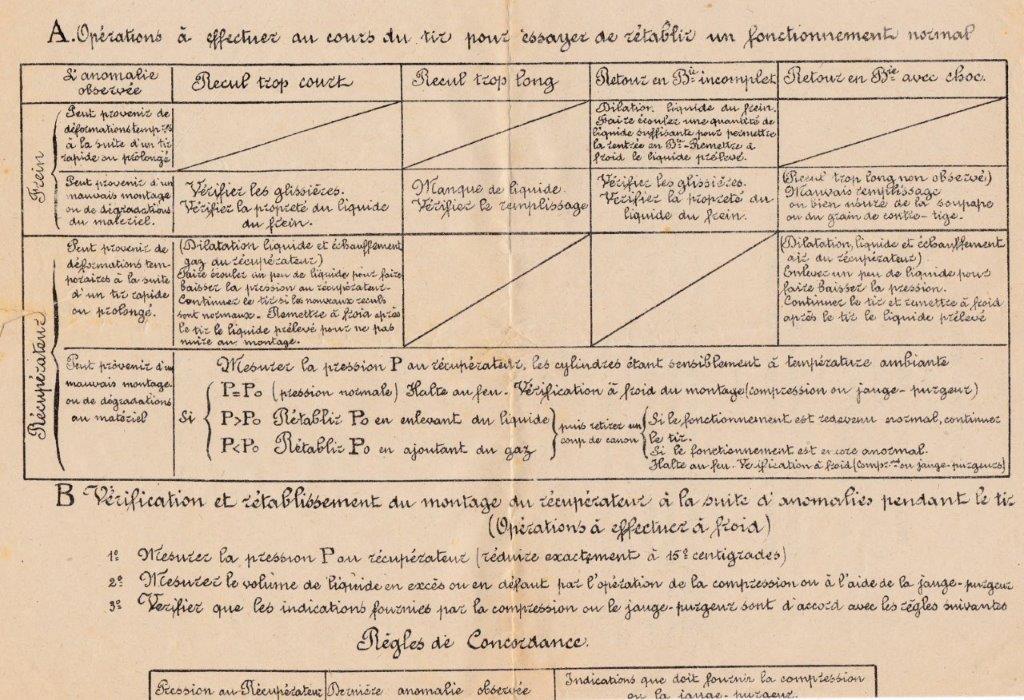 A. Opérations à effectuer au cours du tir pour essayer de rétablir un fonctionnement normal
L'anomalie
observée
Recul trop court
Recul trop long
Retour en Bie incomplet
Retour en Bie avec choc.
Frein
Peut provenir de
déformations tempres
à la suite d'un tir
rapide ou prolongé
Dilation. liquide du frein.
Faire écouler une quantité de
liquide suffisante pour permettre
la rentrée en Bie - Remettre à
froid le liquide prélevé.
Peut provenir d'un
mauvais montage
ou de dégradations
du matériel.
Vérifier les glissières.
Vérifier la propreté du liquide
du frein.
Manque de liquide.
Vérifier le remplissage
Vérifier les glissières.
Vérifier la propreté du
liquide du frein.
(Recul trop long non observé)
Mauvais remplissage
ou bien usure de la soupape
ou du grain de contre-tige.
Récupérateur
Peut provenir de
déformations tem-
poraires à la suite
d'un tir rapide
ou prolongé.
(Dilatation liquide et échauffement
gaz du récupérateur)
Faire écouler un peu de liquide pour faire
baisser la pression au récupérateur.
Continuer le tir si les nouveaux reculs
sont normaux. Remettre à froid après
le tir le liquide prélevé pour ne pas
nuire au montage.
(Dilatation, liquide et échauffement
air du récupérateur)
Enlever un peu de liquide pour
faire baisser la pression.
Continuer le tir et remettre à froid
après le tir le liquide prélevé
Peut provenir d'un
mauvais montage.
ou de dégradations
au matériel
Mesurer la pression P au récupérateur, les cylindres étant sensiblement à température ambiante
Si
P=Po (pression normale) Halte au feu - Vérification à froid du montage (compression ou jauge-purgeur)
P>Po Rétablir Po en enlevant du liquide
P<Po Rétablir Po en ajoutant du gaz
puis retirer un
coup de canon
Si le fonctionnement est redevenu normal, continuer
le tir.
Si le fonctionnement est encore anormal.
Halte au feu. Vérification à froid (compr.on ou jauge-purgeurs)
B Vérification et rétablissement du montage du récupérateur à la suite d'anomalies pendant le tir
(Opérations à effectuer à froid)
1º Mesurer la pression P au récupérateur (réduire exactement à 15º centigrades)
2º Mesurer le volume de liquide en excès ou en défaut par l'opération de la compression ou à l'aide de la jauge-purgeur
3º Verifier que les indications fournies par la compression ou le jauge-purgeur sont d'accord avec les règles suivantes
Règles de Concordance.
Pression au Récupérateur
Dernière anomalie observée
Indications que doit fournir la compression
ou la jauge-purgeur.